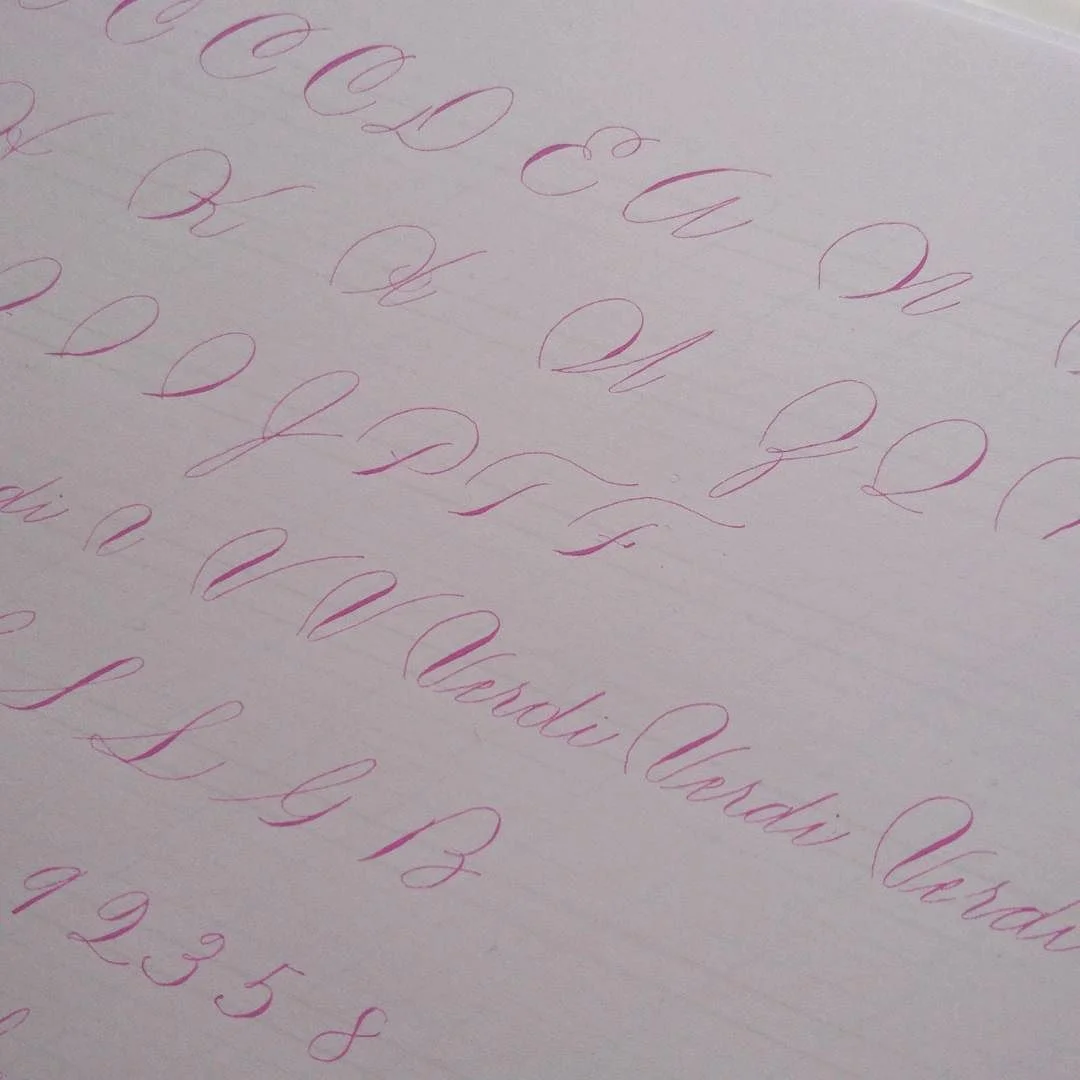 C C C D E A N
K X U Z Q
O O J P T F
di V V V Verdi Verdi Verdi
S S G B
9 2 3 5 8